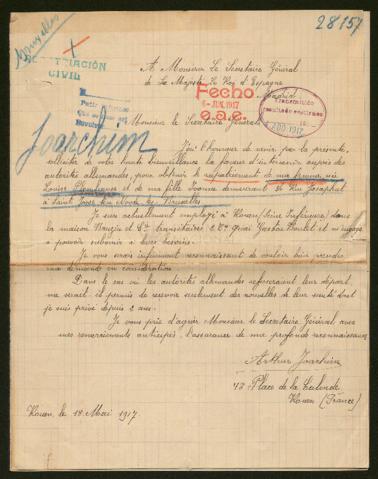 28157
Bruxelles
CIVIL
A Monsieur Le Secrétaire Général
de Sa Majesté Le Roy d'Espagne
Madrid
Fecho
6-JUN.1917
e.a.e.
1917
Monsieur le Secrétaire Général
Joarchim
J'ai l'honneur de venir par la présente,
solliciter de votre haute bienveillance la faveur d'intervenir auprès des
autorités allemandes, pour obtenir le rapatriement de ma femme née
Louise et de ma fille Yvonne demeurant Rue Josaphat
à Saint Josse ten Noode lez Bruxelles
Je suis actuellement employé à Rouen (Seine Inférieure) dans
la maison et Cie transitaires Quai Gaston Boulet et m'engage
à pouvoir subvenir à leurs besoins.
Je vous serais infiniment reconnaissant de vouloir bien prendre
ma demande en considération
Dans le cas où les autorités allemandes refuseraient leur départ
me serait-il permis de recevoir seulement des nouvelles de leur santé dont
je suis privé depuis 2 ans.
Je vous prie d'agréer Monsieur le Secrétaire Général avec
mes remerciements anticipés, l'assurance de ma profonde reconnaissance
Arthur Joarchim
Place de la Calende
Rouen (France)
Rouen, le 18 Mai 1917